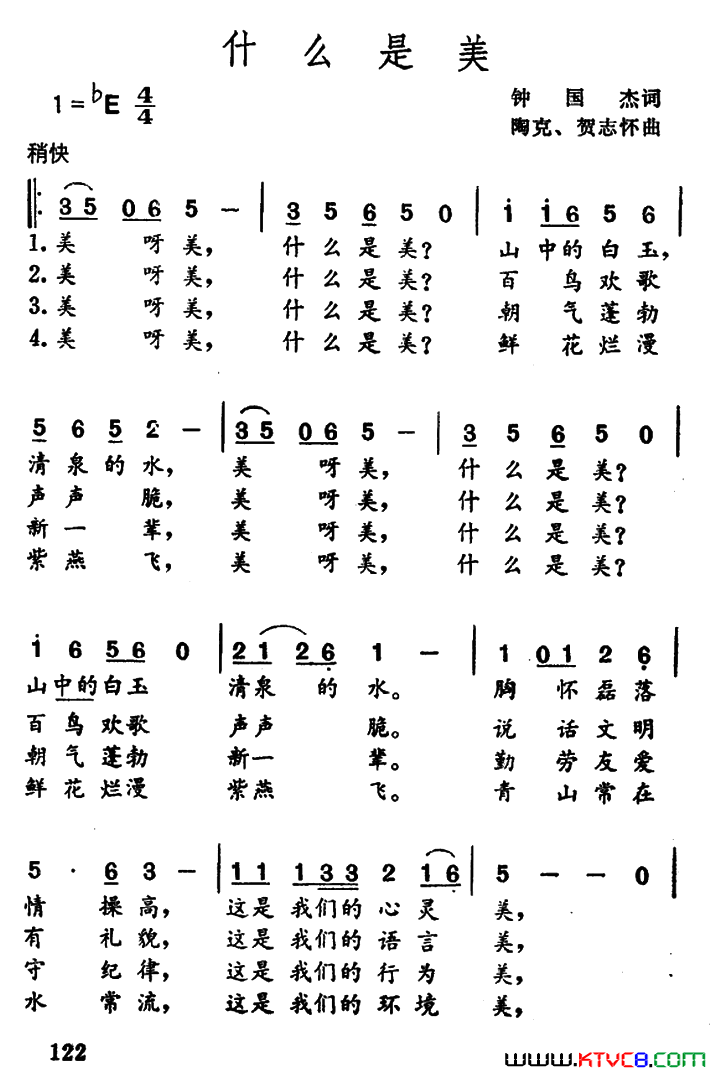 什么是美
1=♭E 4/4
钟国杰词
陶克、贺志怀曲
稍快
3 5 0 6 5 － | 3 5 6 5 0 | i i 6 5 6 |
1.美 呀美， 什么是美？ 山中的白玉，
2.美 呀美， 什么是美？ 百鸟欢歌
3.美 呀美， 什么是美？ 朝气蓬勃
4.美 呀美， 什么是美？ 鲜花烂漫
5 6 5 2 － | 3 5 0 6 5 － | 3 5 6 5 0 |
清泉的水， 美 呀美， 什么是美？
声声 脆， 美 呀美， 什么是美？
新一 辈， 美 呀美， 什么是美？
紫燕 飞， 美 呀美， 什么是美？
i 6 5 6 0 | 2 1 2 6 1 － | 1 0 1 2 6 |
山中的白玉 清泉的水。 胸怀磊落
百鸟欢歌 声声 脆。 说话文明
朝气蓬勃 新一 辈。 勤劳友爱
鲜花烂漫 紫燕 飞。 青山常在
5 · 6 3 － | 1 1 1 3 3 2 1 6 | 5 － － 0 |
情 操高， 这是我们的心灵 美，
有 礼貌， 这是我们的语言 美，
守 纪律， 这是我们的行为 美，
水 常流， 这是我们的环境 美，
122
www.KTVC8.com